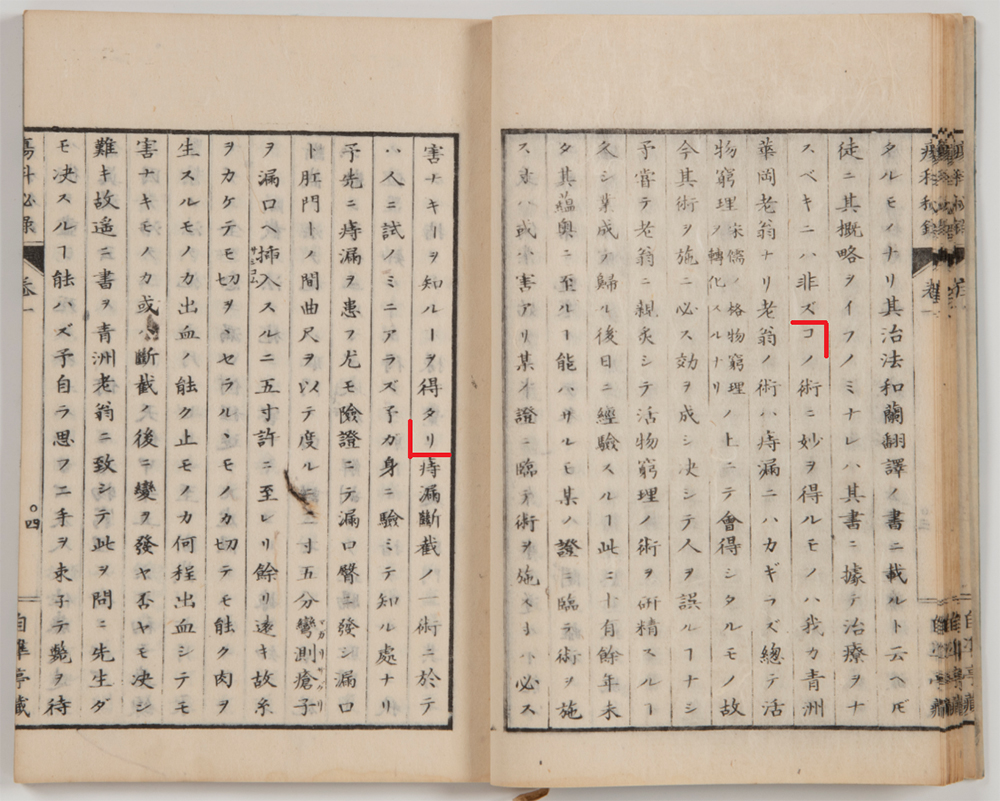 瘍科秘録
自準亭藏
タルモノナリ其治法和蘭翻譯ノ書ニ載ルト云ヘ𪜈
徒ニ其概略ヲイフノミナレハ其書ニ據テ治療ヲナ
スベキニハ非ズコノ術ニ妙ヲ得ルモノハ我カ青洲
華岡老翁ナリ老翁ノ術ハ痔漏ニハカギラズ總テ活
物窮理宋儒ノ格物窮理ノ轉化スルナリノ上ニテ會得シタルモノ故
今其術ヲ施ニ必ス効ヲ成シ决シテ人ヲ誤ルヿナシ
予甞テ老翁ニ親炙シテ活物窮理ノ術ヲ研精スルヿ
久シ業成ノ歸ル後日ニ經驗スルヿ此ニ十有餘年未
タ其蘊奥ニ至ルヿ能ハサルモ某ノ證ニ臨テ術ヲ施
ス寸ハ或ハ害アリ某ノ證ニ臨テ術ヲ施ス寸ハ必ス
害ナキヿヲ知ルヿヲ得タリ痔漏斷截ノ一術ニ於テ
ハ人ニ試ノミニアラズ予ガ身ニ驗ミテ知ル處ナリ
予先ニ痔漏ヲ患フ尤モ險證ニテ漏口臀ニ發シ漏口
ト肛門トノ間曲尺ヲ以テ度ル二寸五分彎測瘡子
ヲ漏口ヘ挿入スルニ五寸許ニ至レリ餘リ遠キ故糸
ヲカケテモ切ヲヽセラルヽモノカ切テモ能ク肉ヲ
生スルモノカ出血ノ能ク止モノカ何程出血シテモ
害ナキモノカ或ハ斷截ノ後ニ變ヲ發ヤ否ヤモ决シ
難キ故遥ニ書ヲ青洲老翁ニ致シテ此ヲ問ニ先生ダ
モ决スルヿ能ハズ予自ラ思フニ手ヲ束子テ斃ヲ待
瘍科秘録
卷一
〇四
自準亭藏